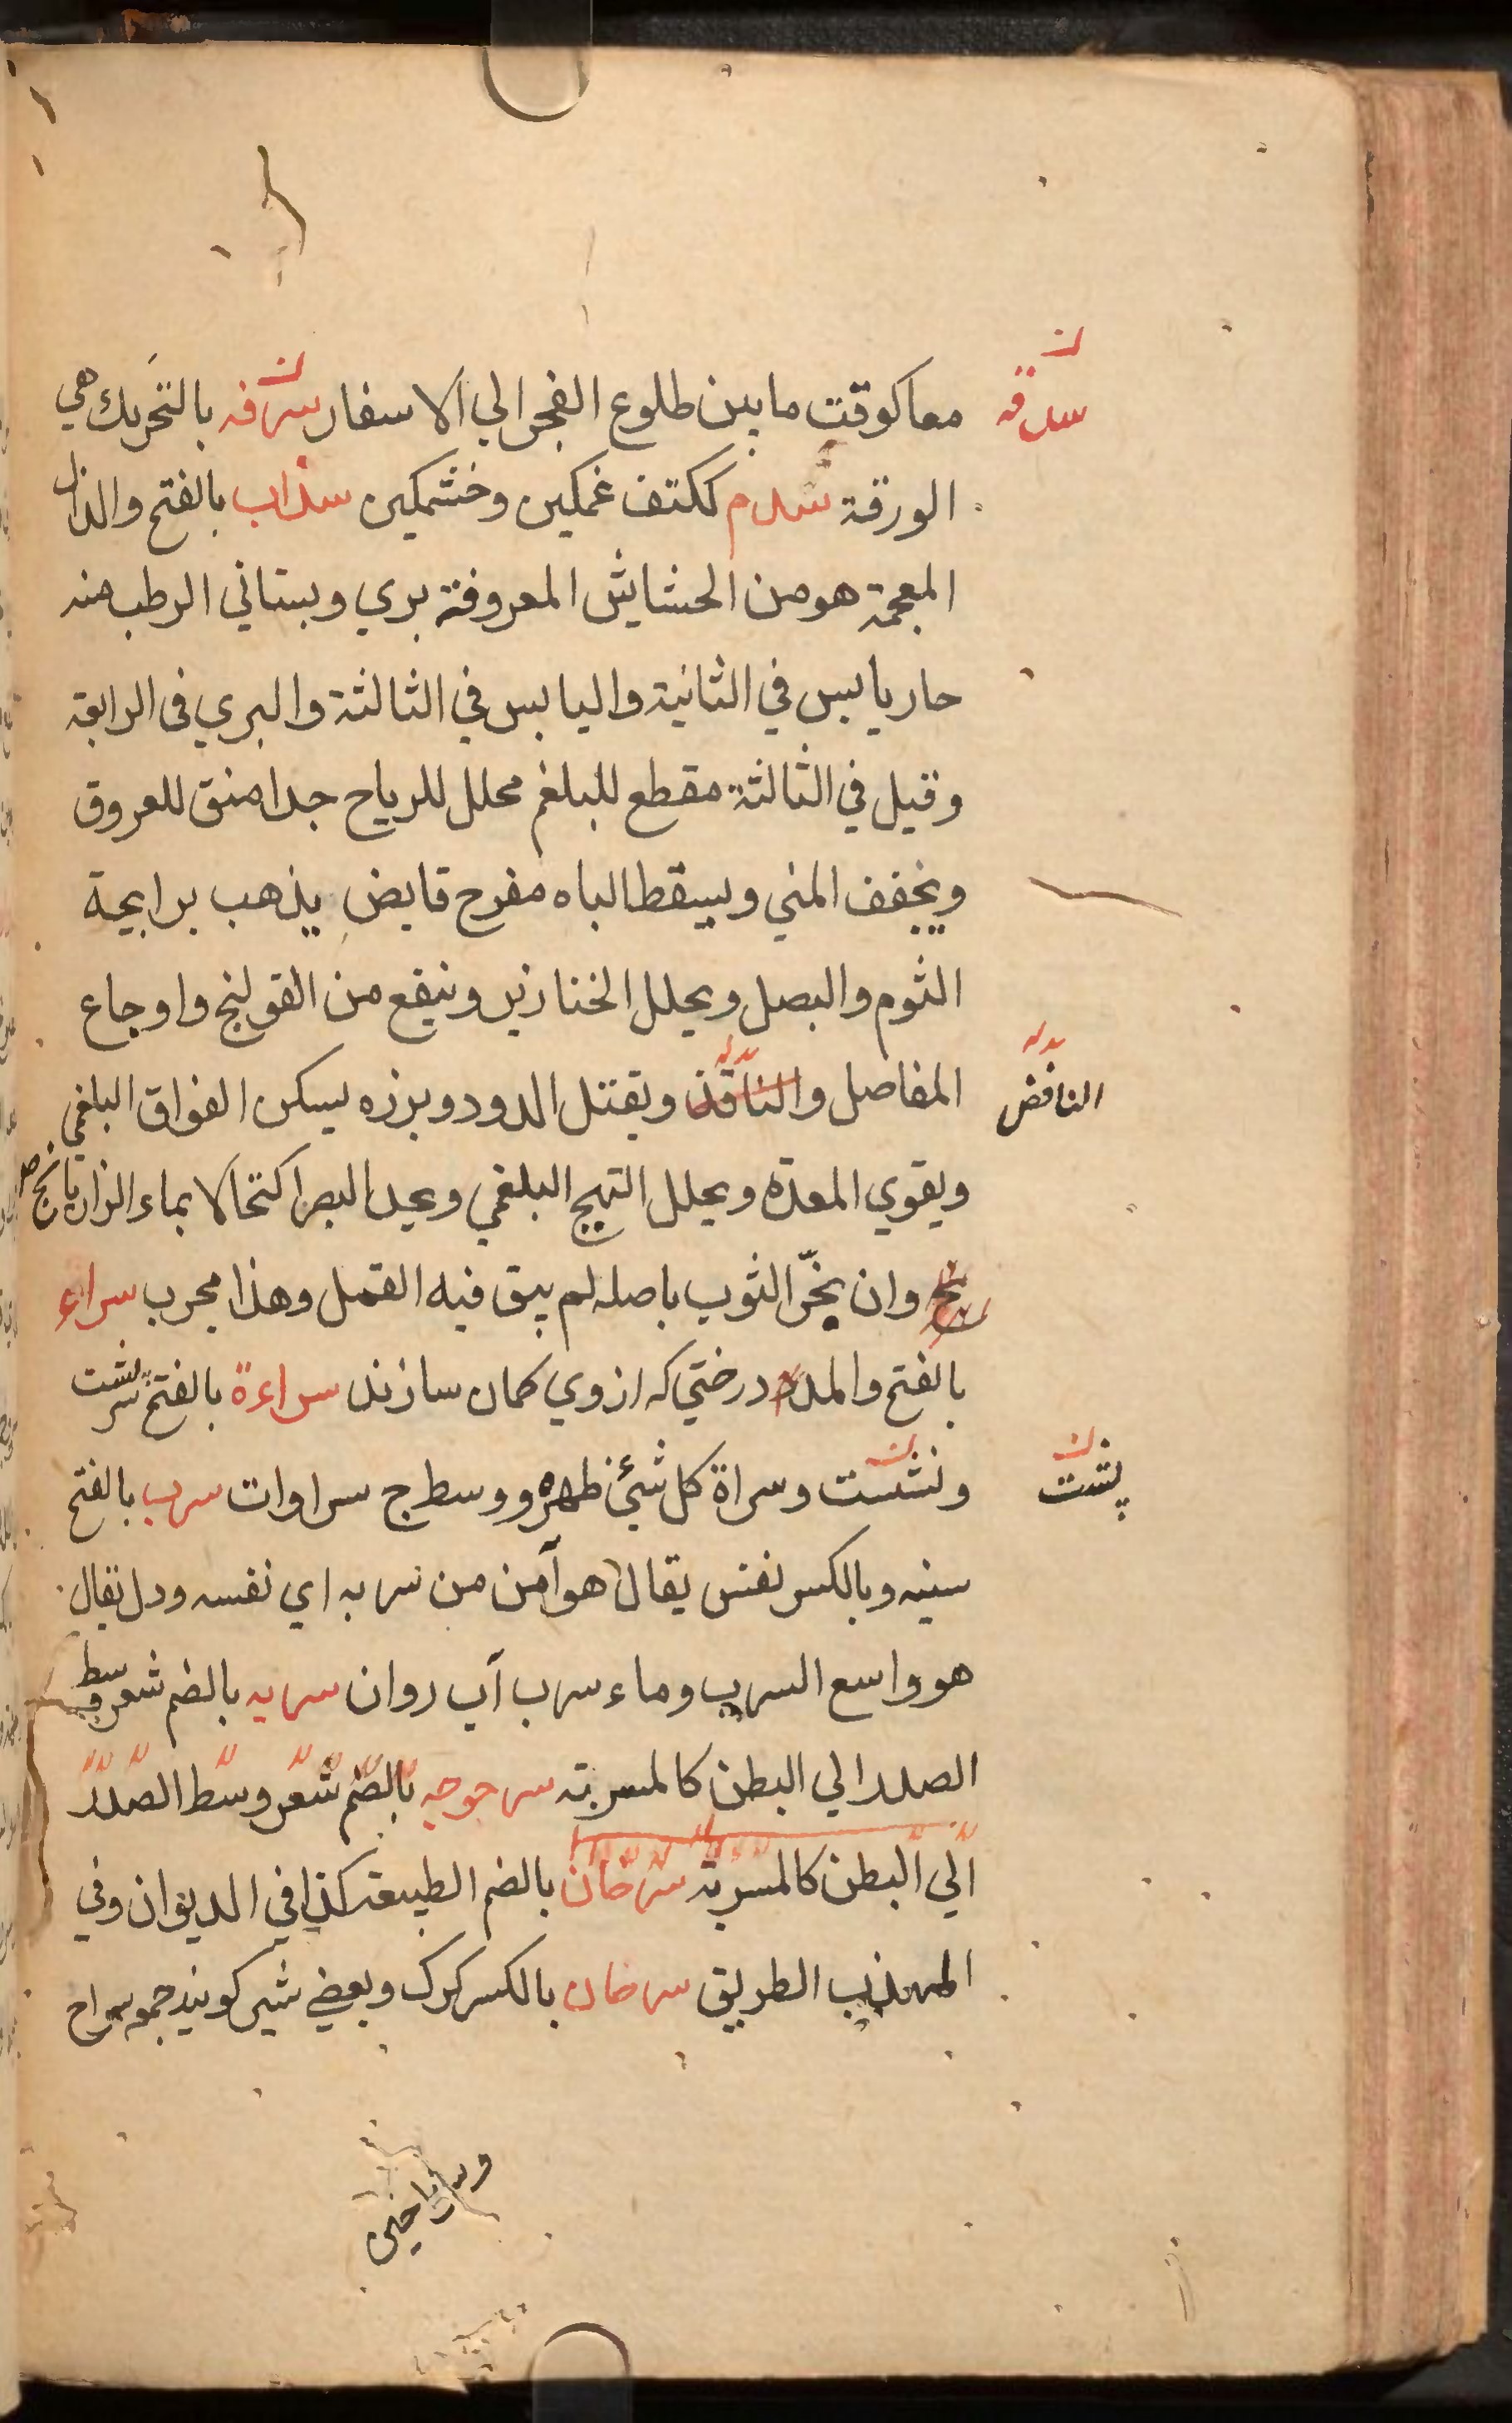 معا كوقت ما بين طلوع الفجر الي الاسفار سرفه بالتحريك هي
سدقه
الورقة سدم ككتف غمكين وخشمكين سذاب بالفتح والذال
المعجمة هو من الحشايش المعروفة بري وبستاني الرطب منه
حار يابس في الثانية واليابس في الثالثة والبري في الرابعة
وقيل في الثالثة مقطع للبلغم محلل للرياح جدا منق للعروق
ويجفف المني ويسقط الباه مفرح قابض يذهب برايحة
الثوم والبصل ويحلل الخنازير وينفع من القولنج واوجاع
المفاصل والناقذ ويقتل الدود وبرزه يسكن الفواق البلغمي
النافض
ويقوي المعدة ويحلل التهيج البلغمي ويحد البصر اكتحالا بماء الرازيانج
وان بخر الثوب باصله لم يبق فيه القمل وهذا مجرب سراء
بالفتح والمد درختي كه ازوي كمان سازند سراءة بالفتح
ونشست وسراة كل شيئ ظهره ووسط ج سراوات سرب بالفتح
پشت
سينه وبالكسر نفس يقال هو آمن من سربه اي نفسه ودل يقال
هو واسع السرب وماء سرب آب روان سربه بالضم شعر وسط
الصدر الي البطن كالمسربته سرجوجه بالضم شعر وسط الصدر
الي البطن كالمسربة سرحان بالضم الطبيعة كذا في الديوان وفي
المهذب الطريق سرحان بالكسر كرك وبعضي شير كويند جمعه سراح